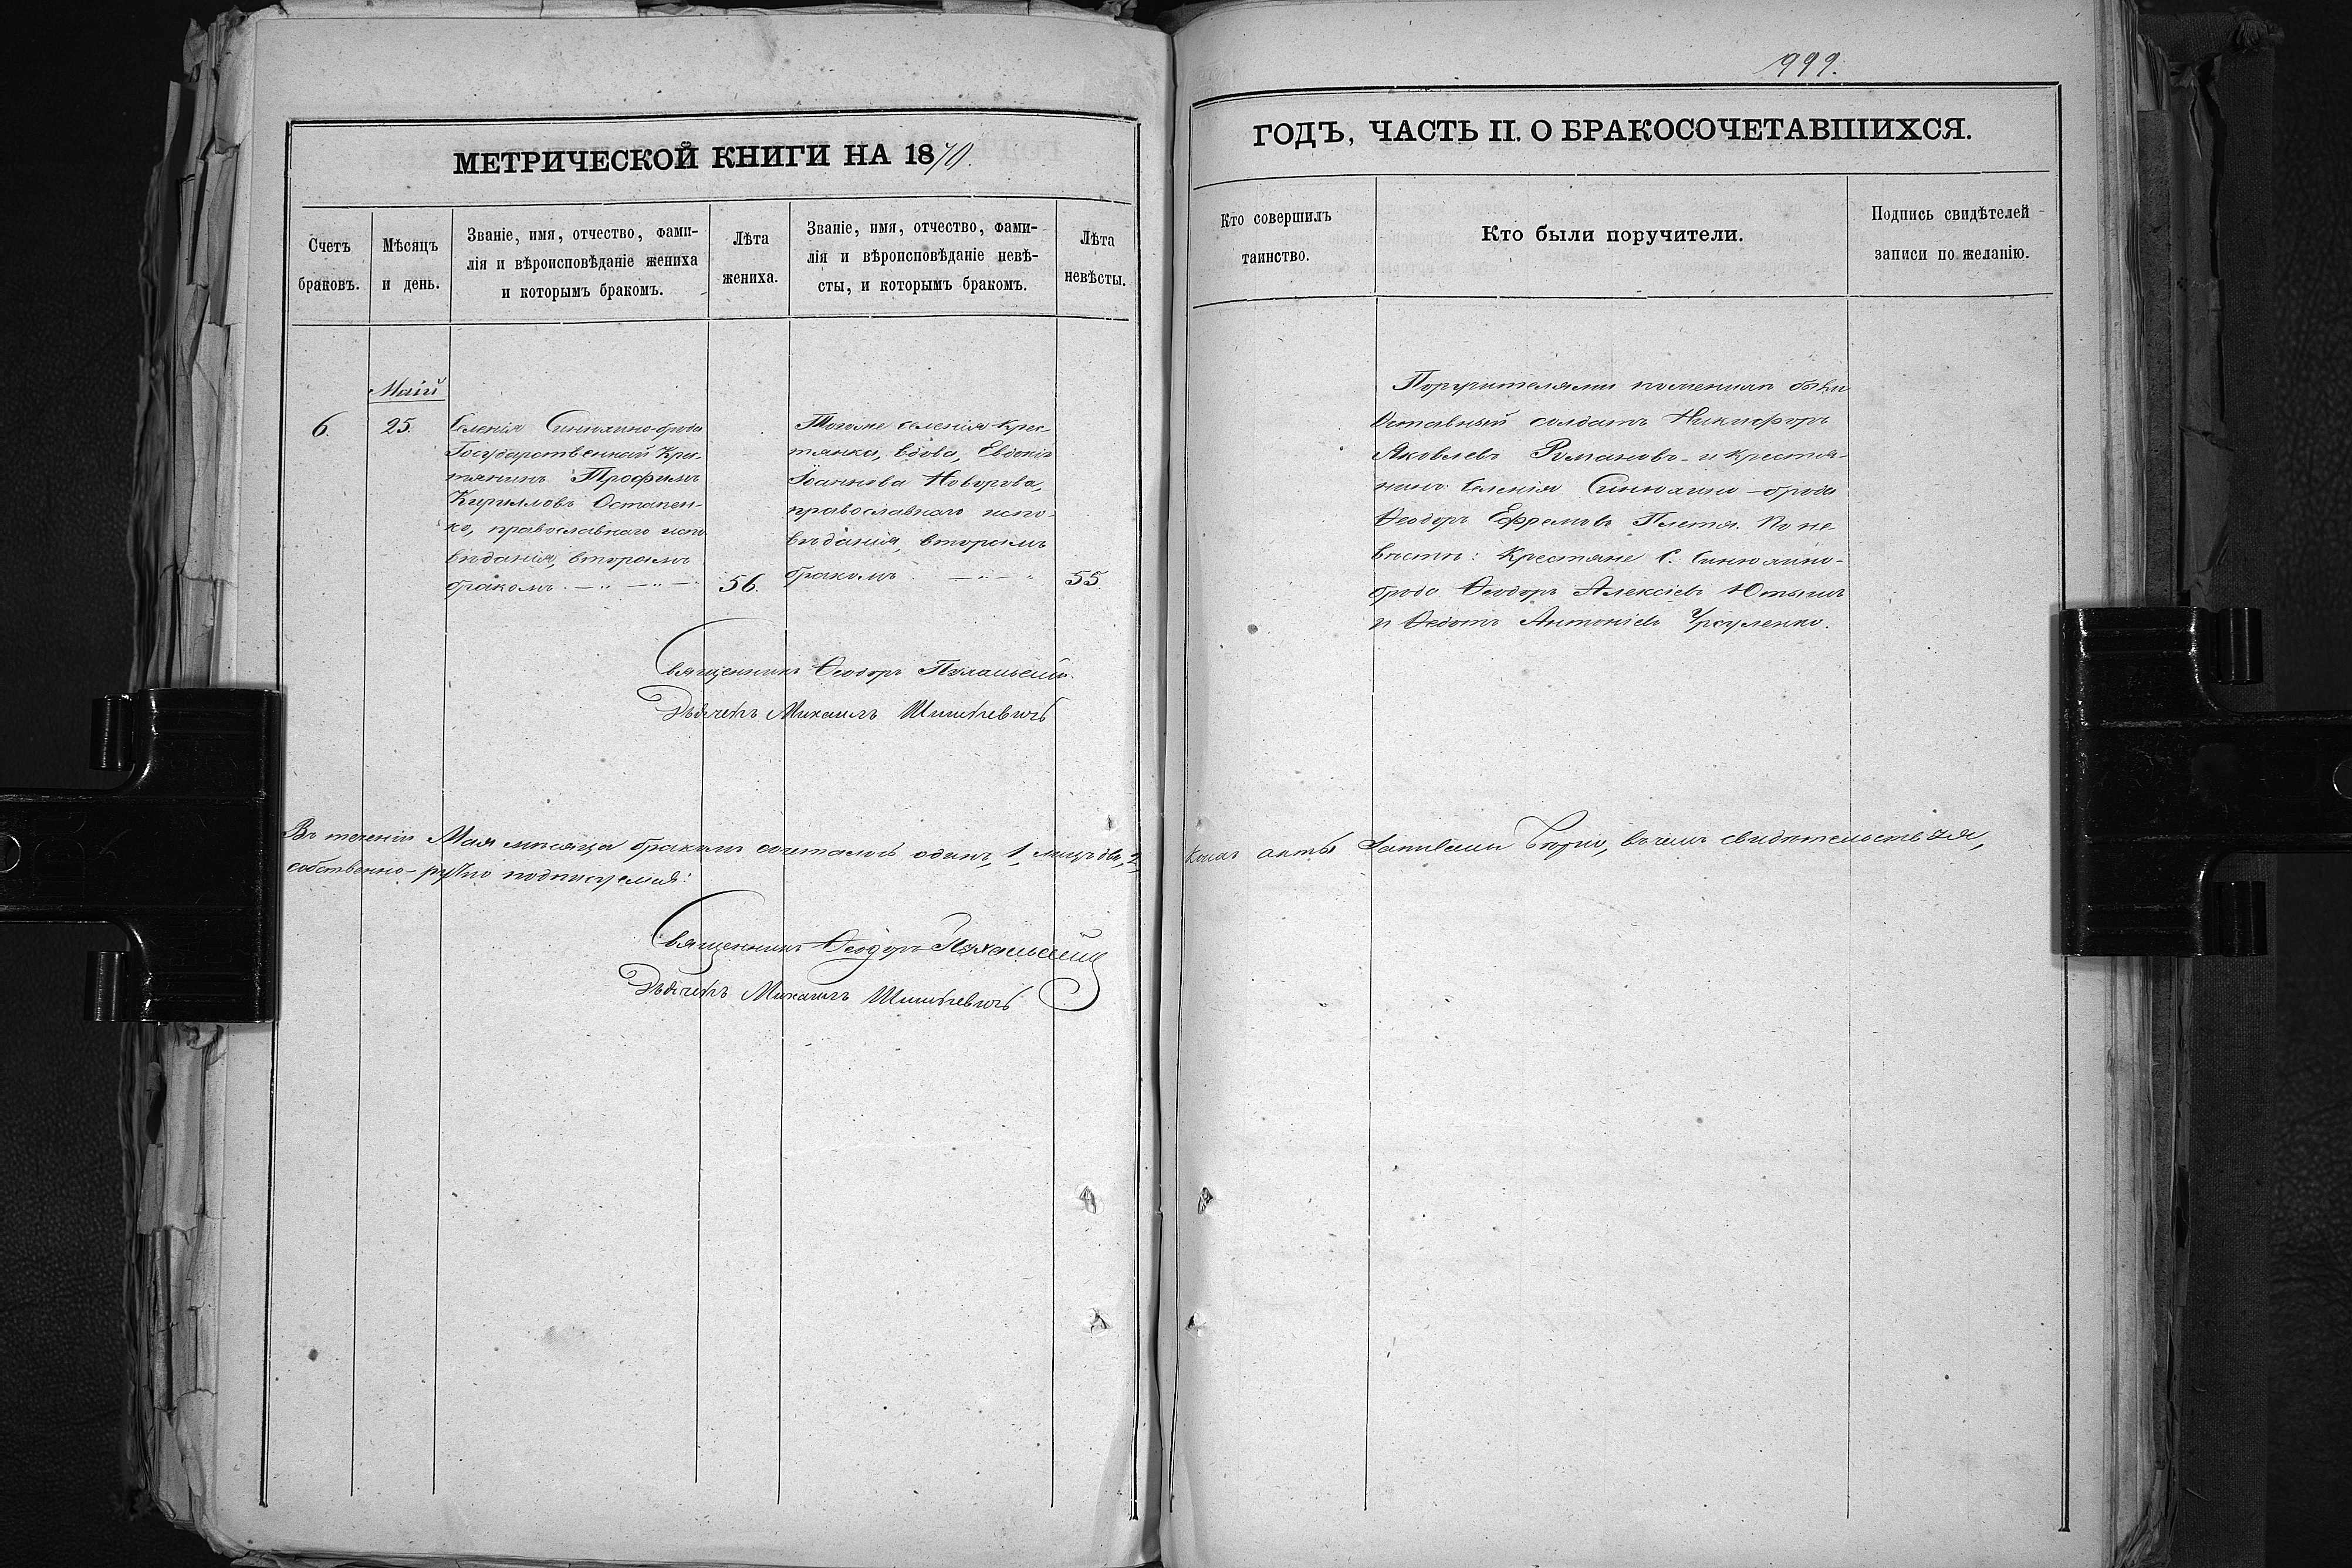 999.
МЕТРИЧЕСКОЙ КНИГИ НА 1870.
ГОДЪ, ЧАСТЬ II. О БРАКОСОЧЕТАВШИХСЯ.
Счетъ
браковъ.
Мѣсяцъ
и день.
Званіе, имя, отчество, фами-
лія и вѣроисповѣданіе жениха
и которымъ бракомъ.
Лѣта
жениха.
Званіе, имя, отчество, фами-
лія и вѣроисповѣданіе невѣ-
сты, и которымъ бракомъ.
Лѣта
невѣсты.
Кто совершилъ
таинство.
Кто были поручители.
Подпись свидѣтелей
записи по желанію.
Маій
6.
25.
Селенія Синюхино-брода
Государственный Крес-
тянинъ Трофимъ
Кириловъ Остапен-
ко, православнаго испо
вѣданія, вторымъ
бракомъ
56.
Тогоже селенія Крес-
тянка, вдова, Евдокія
Іоаннова
православнаго испо-
вѣданія, вторымъ
бракомъ
55.
Поручителями по женихѣ были
Отставный солдатъ Никифоръ
Яковлевъ Романовъ и крестья-
нинъ Селенія Синюхино-брода
Ѳеодоръ Ефремовъ Плетя. По не
вѣстѣ: Крестяне С. Синюхино-
брода Ѳеодоръ Алексіевъ
и Ѳедотъ Антоніевъ Урсуленко.
Священникъ Ѳеодоръ
Дьячекъ Михаилъ
В теченіи Мая мѣсяца бракомъ сочеталось одинъ, 1, лицъ два, 2,
акты вѣрно, въ чемъ свидѣтельствуя,
собственно-ручно подписуемся:
Священникъ Ѳеодоръ
Дьячекъ Михаилъ